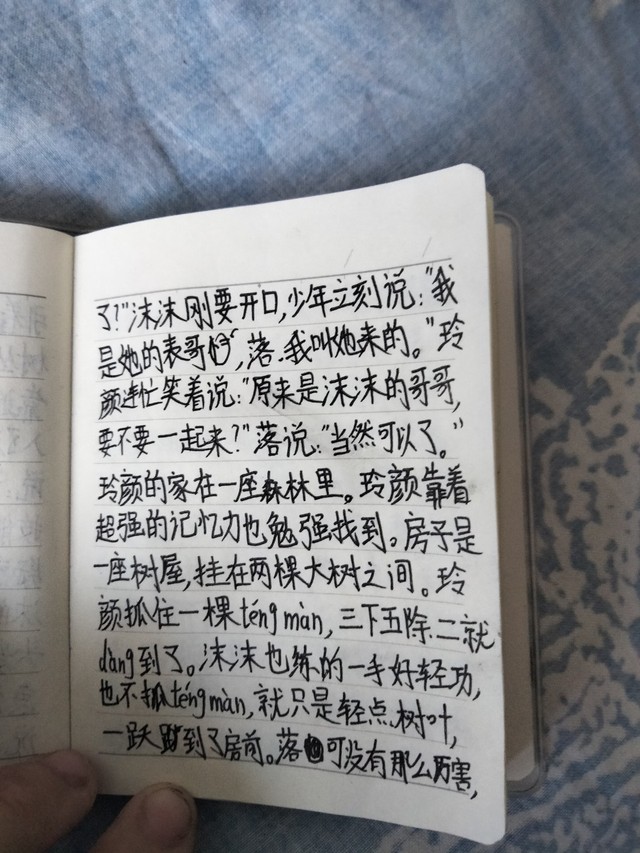 了?"沫沫刚要开口,少年立刻说:"我
是她的表哥,落.我叫她来的。"玲
颜连忙笑着说:"原来是沫沫的哥哥,
要不要一起来?"落说:"当然可以了。"
玲颜的家在一座森林里。玲颜靠着
超强的记忆力也勉强找到。房子是
一座树屋,挂在两棵大树之间。玲
颜抓住一棵téng màn,三下五除二就
dàng到了。沫沫也练的一手好轻功,
也不抓téng màn,就只是轻点树叶,
一跃到了房前。落可没有那么厉害,